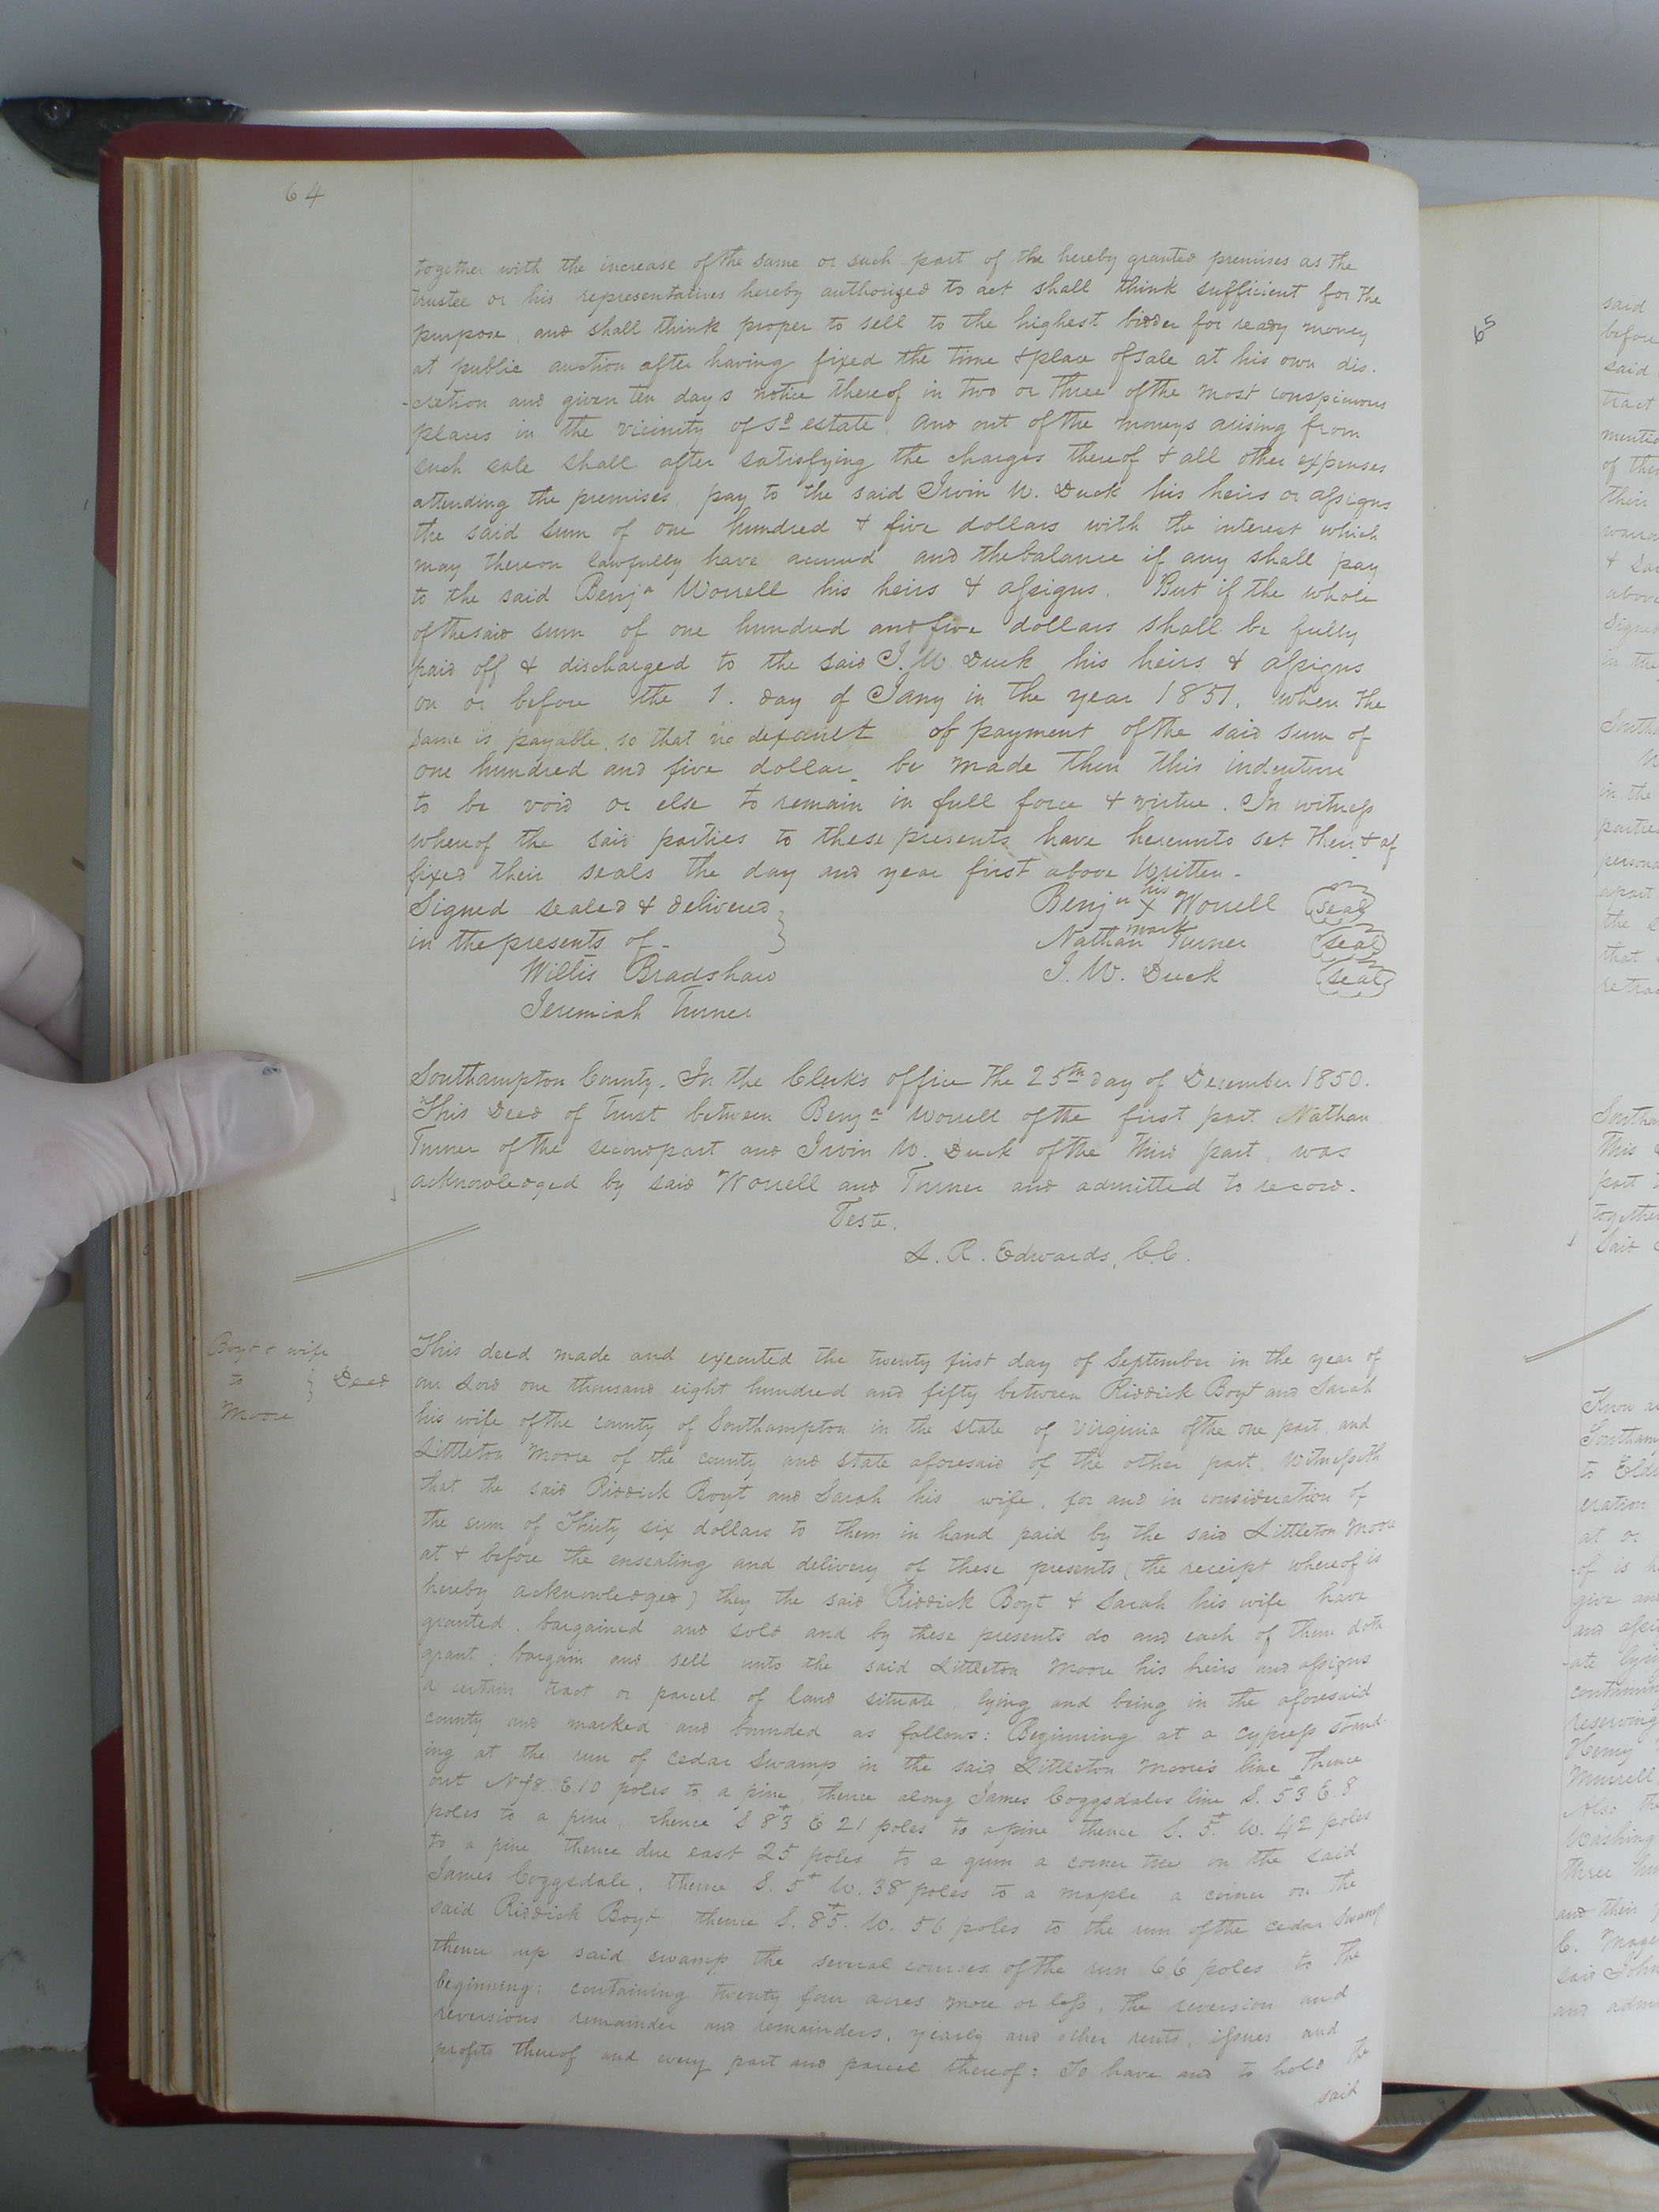 64
together with the increase of the same or such part of the hereby granted premises as the
trustee or his representatives hereby authorized to act shall think sufficient for the
purpose, and shall think proper to sell to the highest bidder for ready money
at public auction after having fixed the time & place of sale at his own dis-
-cretion and given ten days notice thereof in two or three of the most conspicuous
places in the vicinity of sd estate, and out of the moneys arising from
such sale shall after satisfying the charges thereof & all other expenses
attending the premises, pay to the said Irvin W. Duck his heirs or assigns
the said sum of one hundred & five dollars with the interest which
may thereon lawfully have accrued and the balance if any shall pay
to the said Benja Worrell his heirs & assigns. But if the whole
of the said sum of one hundred and five dollars shall be fully
paid off & discharged to the said I. W. Duck his heirs & assigns
on or before the 1. day of Jany in the year 1851, when the
same is payable, so that no default of payment of the said sum of
one hundred and five dollar be made then this indenture
to be void or else to remain in full force & virtue. In witness
whereof the said parties to these presents have hereunto set their & af
fixed their seals the day and year first above written.
Signed sealed & delivered } Benja his X mark Worrell (seal)
in the presents of - Nathan Turner (seal)
Willis Bradshaw I. W. Duck (seal)
Jeremiah Turner
Southampton County. In the Clerk's office the 25th day of December 1850.
This Deed of Trust between Benja Worrell of the first part Nathan
Turner of the second part and Irvin W. Duck of the third part, was
acknowledged by said Worrell and Turner and admitted to record.
Teste,
L. R. Edwards, C.C.
Boyt & wife
to } Deed
Moore
This deed made and executed the twenty first day of September in the year of
our Lord one thousand eight hundred and fifty between Riddick Boyt and Sarah
his wife of the county of Southampton in the state of Virginia of the one part and
Littleton Moore of the county and state aforesaid of the other part, Witnesseth
that the said Riddick Boyt and Sarah his wife, for and in consideration of
the sum of Thirty six dollars to them in hand paid by the said Littleton Moore
at & before the ensealing and delivery of these presents (the receipt whereof is
hereby acknowledged) they the said Riddick Boyt & Sarah his wife have
granted, bargained and sold and by these presents do and each of them doth
grant, bargain and sell unto the said Littleton Moore his heirs and assigns
a certain tract or parcel of land situate, lying and being in the aforesaid
county and marked and bounded as follows: Beginning at a cypress stand-
ing at the run of cedar swamp in the said Littleton Moore's line, thence
out E 10 poles to a pine, thence along James Coggsdales line S. 53 E. 8
poles to a pine, thence S 83 E 21 poles to a pine thence S. 5. W. 42 poles
to a pine thence due east 25 poles to a gum a corner tree on the said
James Coggsdale, thence S. 5 W. 38 poles to a maple a corner on the
said Riddick Boyt thence S. 85. W. 56 poles to the run of the cedar swamp
thence up said swamp the several courses of the run 66 poles to the
beginning: containing twenty four acres more or less, the reversion and
reversions remainder and remainders, yearly and other rents, issues and
profits thereof and every part and parcel thereof: To have and to hold the
said
65
said
before
said
tract
of
their
&
above
Signed
in the
in the
the
that
this
part
together
said
Know
to
at or
of is
give and
and
reserving
Henry
Murrell
Also the
three
and their
C.
said John
and